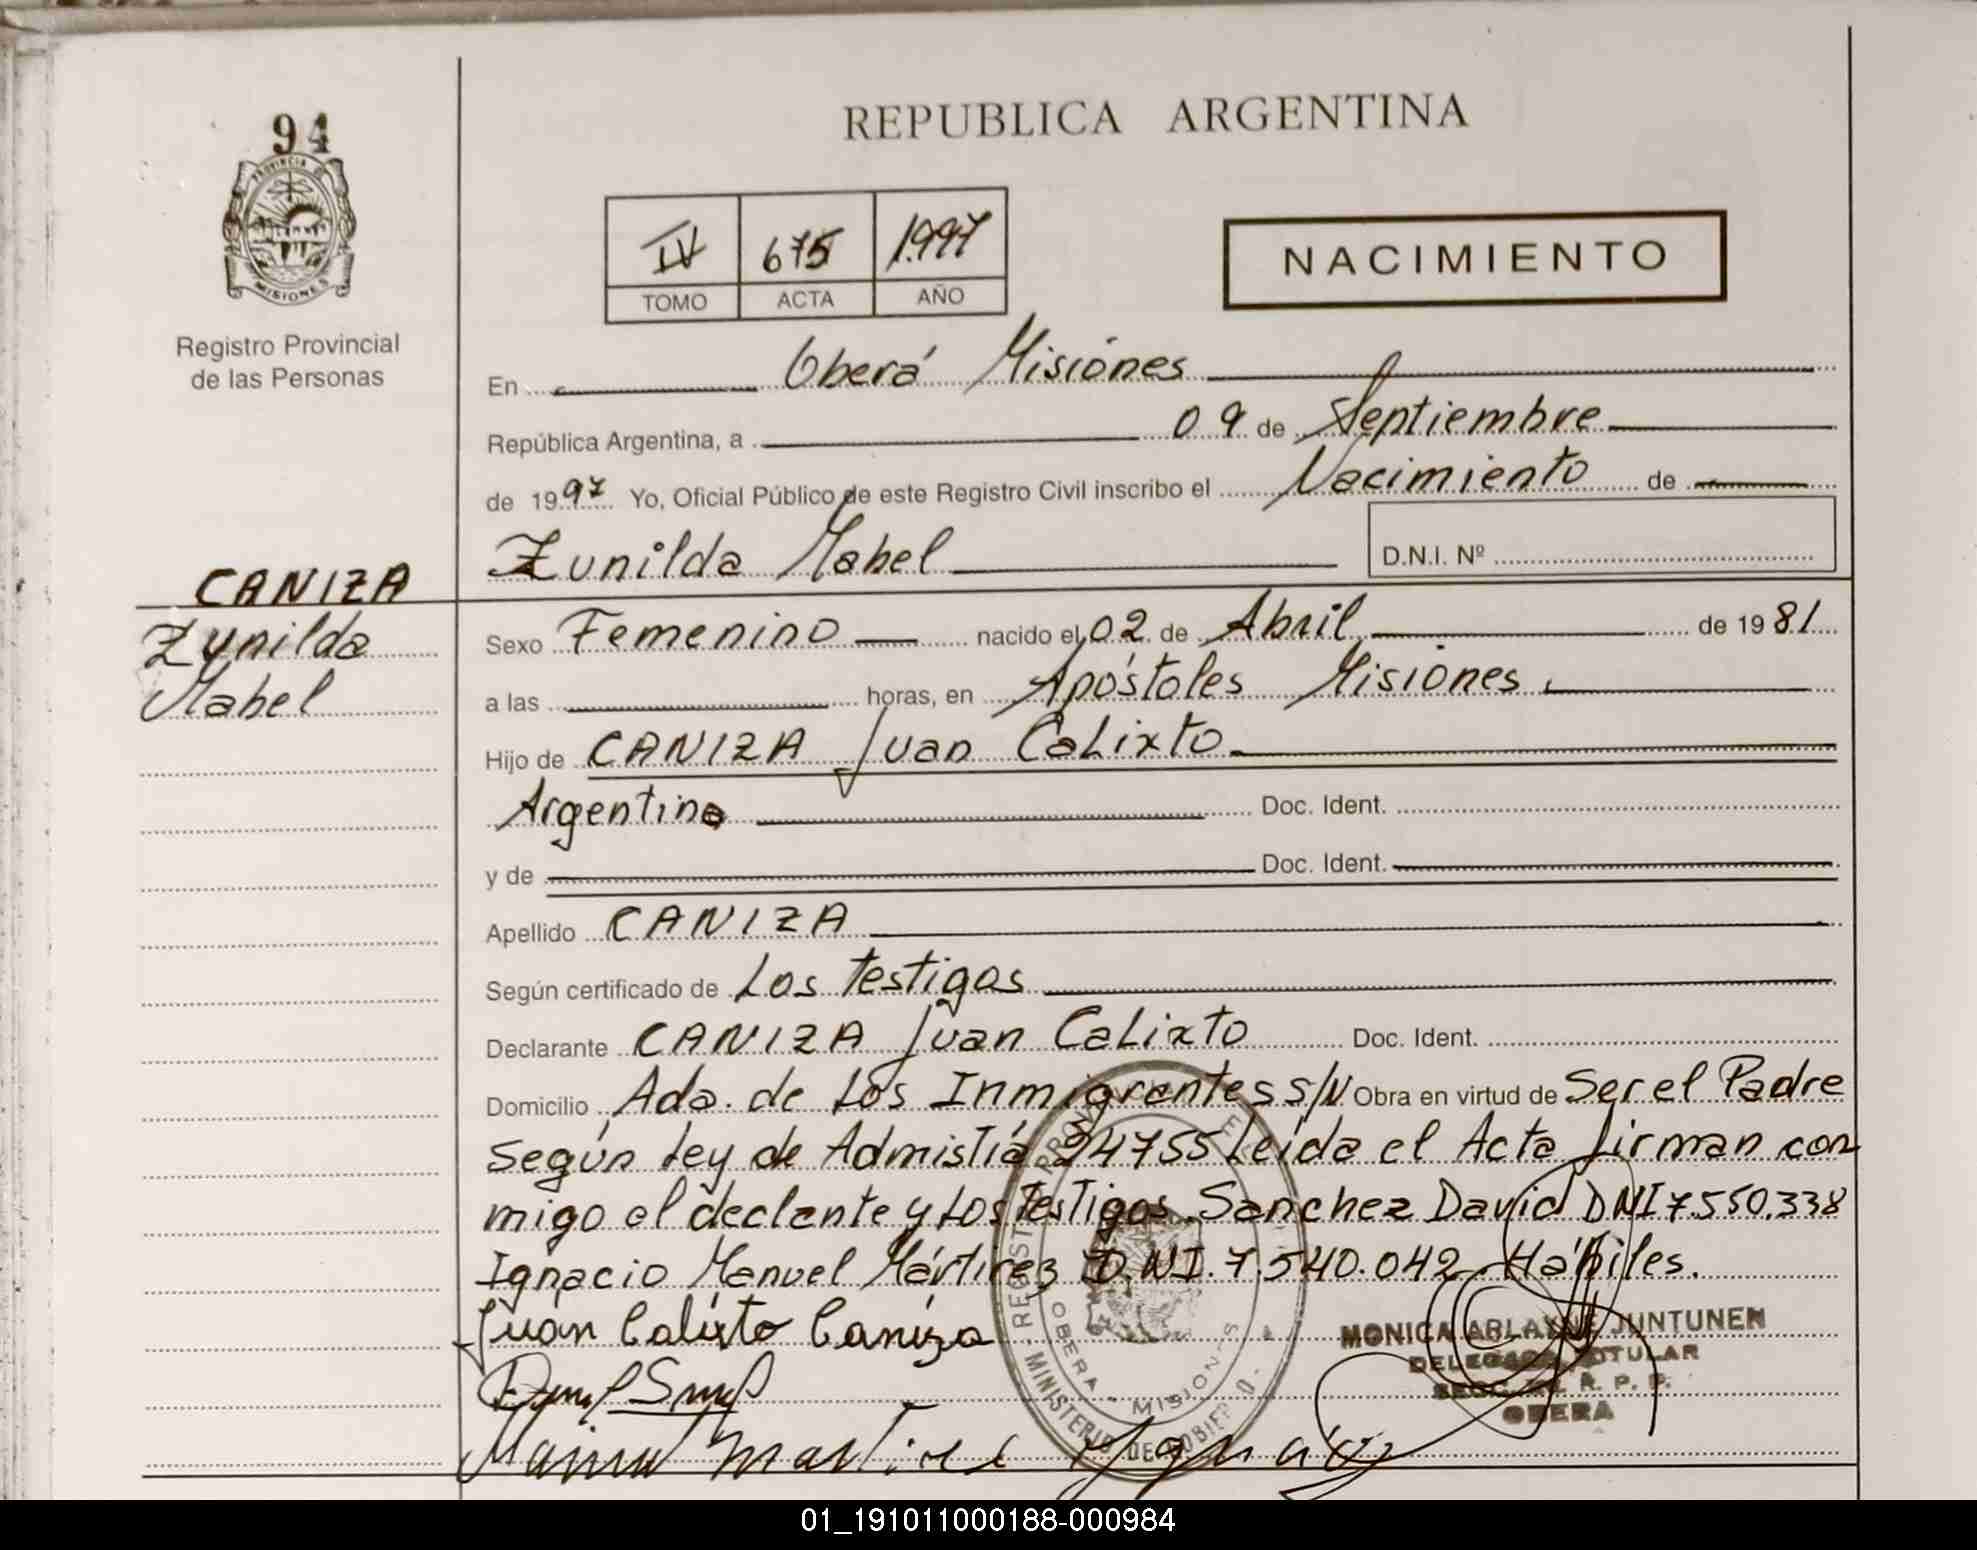 94
PROVINCIA DE
MISIONES
Registro Provincial
de las Personas
CANIZA
Zunilda
Mabel
REPUBLICA ARGENTINA
IV 675 1.997
TOMO ACTA AÑO
NACIMIENTO
En Oberá Misiónes
República Argentina, a 09 de Septiembre
de 1997 Yo, Oficial Público de este Registro Civil inscribo el Nacimiento de
Zunilda Mabel
D.N.I. Nº
Sexo Femenino nacido el 02 de Abril de 1981
a las horas, en Apóstoles Misiones
Hijo de CANIZA Juan Calixto
Argentino Doc. Ident.
y de Doc. Ident.
Apellido CANIZA
Según certificado de Los Testigos
Declarante CANIZA Juan Calixto Doc. Ident.
Domicilio Ada. de Los Inmigrentes S/N Obra en virtud de Ser el Padre
según Ley de Admistiá 24755 Leída el Acta firman con
migo el declante y Los Testigos. Sanchez David DNI 7.550.338
Ignacio Manuel Mártirez D.NI. 7.540.042 Hábiles.
Juan Calixto Caniza
MONICA ARLAYNE JUNTUNEN
DELEGADA TITULAR
R. P. P.
OBERA
MINISTERIO DE GOBIERNO
OBERA - MISIONES
01_191011000188-000984